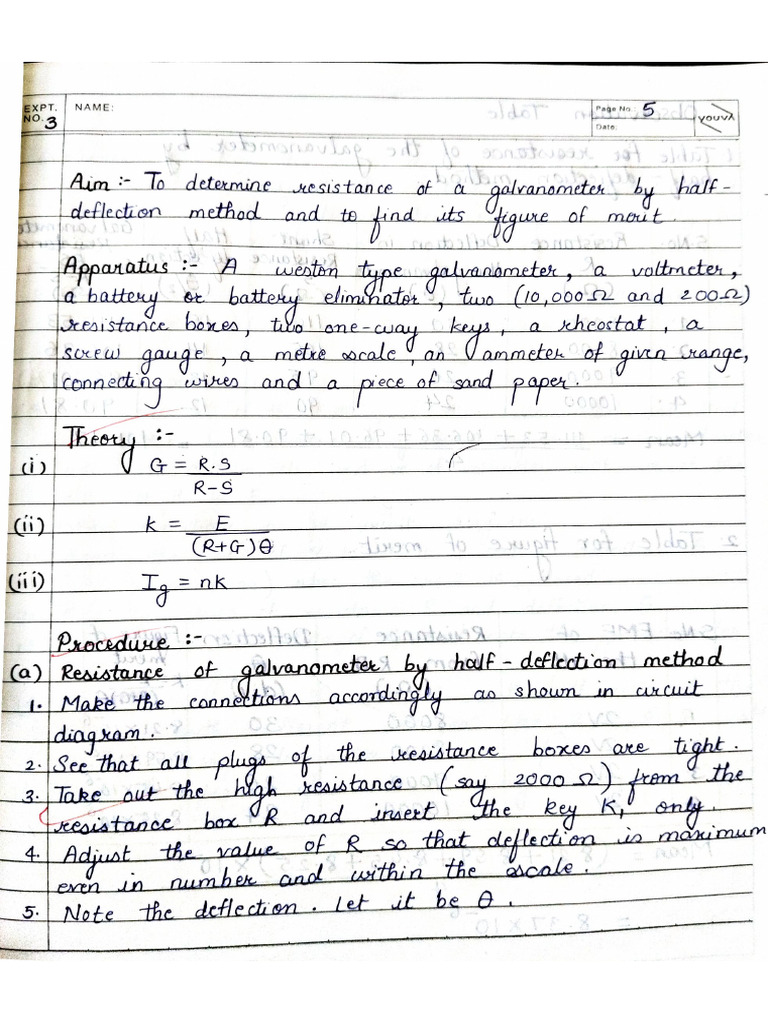 EXPT. NO. 3 NAME: Page No.: 5 youva
Date:
Aim :- To determine resistance of a galvanometer by half-
deflection method and to find its figure of merit.
Apparatus :- A weston type galvanometer, a voltmeter,
a battery or battery eliminator, two (10,000Ω and 200Ω)
resistance boxes, two one-way keys, a rheostat, a
screw gauge, a metre scale, an ammeter of given range,
connecting wires and a piece of sand paper.
Theory :-
(i) G = R.S / R-S
(ii) k = E / (R+G)θ
(iii) Ig = nk
Procedure :-
(a) Resistance of galvanometer by half-deflection method
1. Make the connections accordingly as shown in circuit
diagram.
2. See that all plugs of the resistance boxes are tight.
3. Take out the high resistance (say 2000 Ω) from the
resistance box R and insert the key K1 only.
4. Adjust the value of R so that deflection is maximum
even in number and within the scale.
5. Note the deflection. Let it be θ.